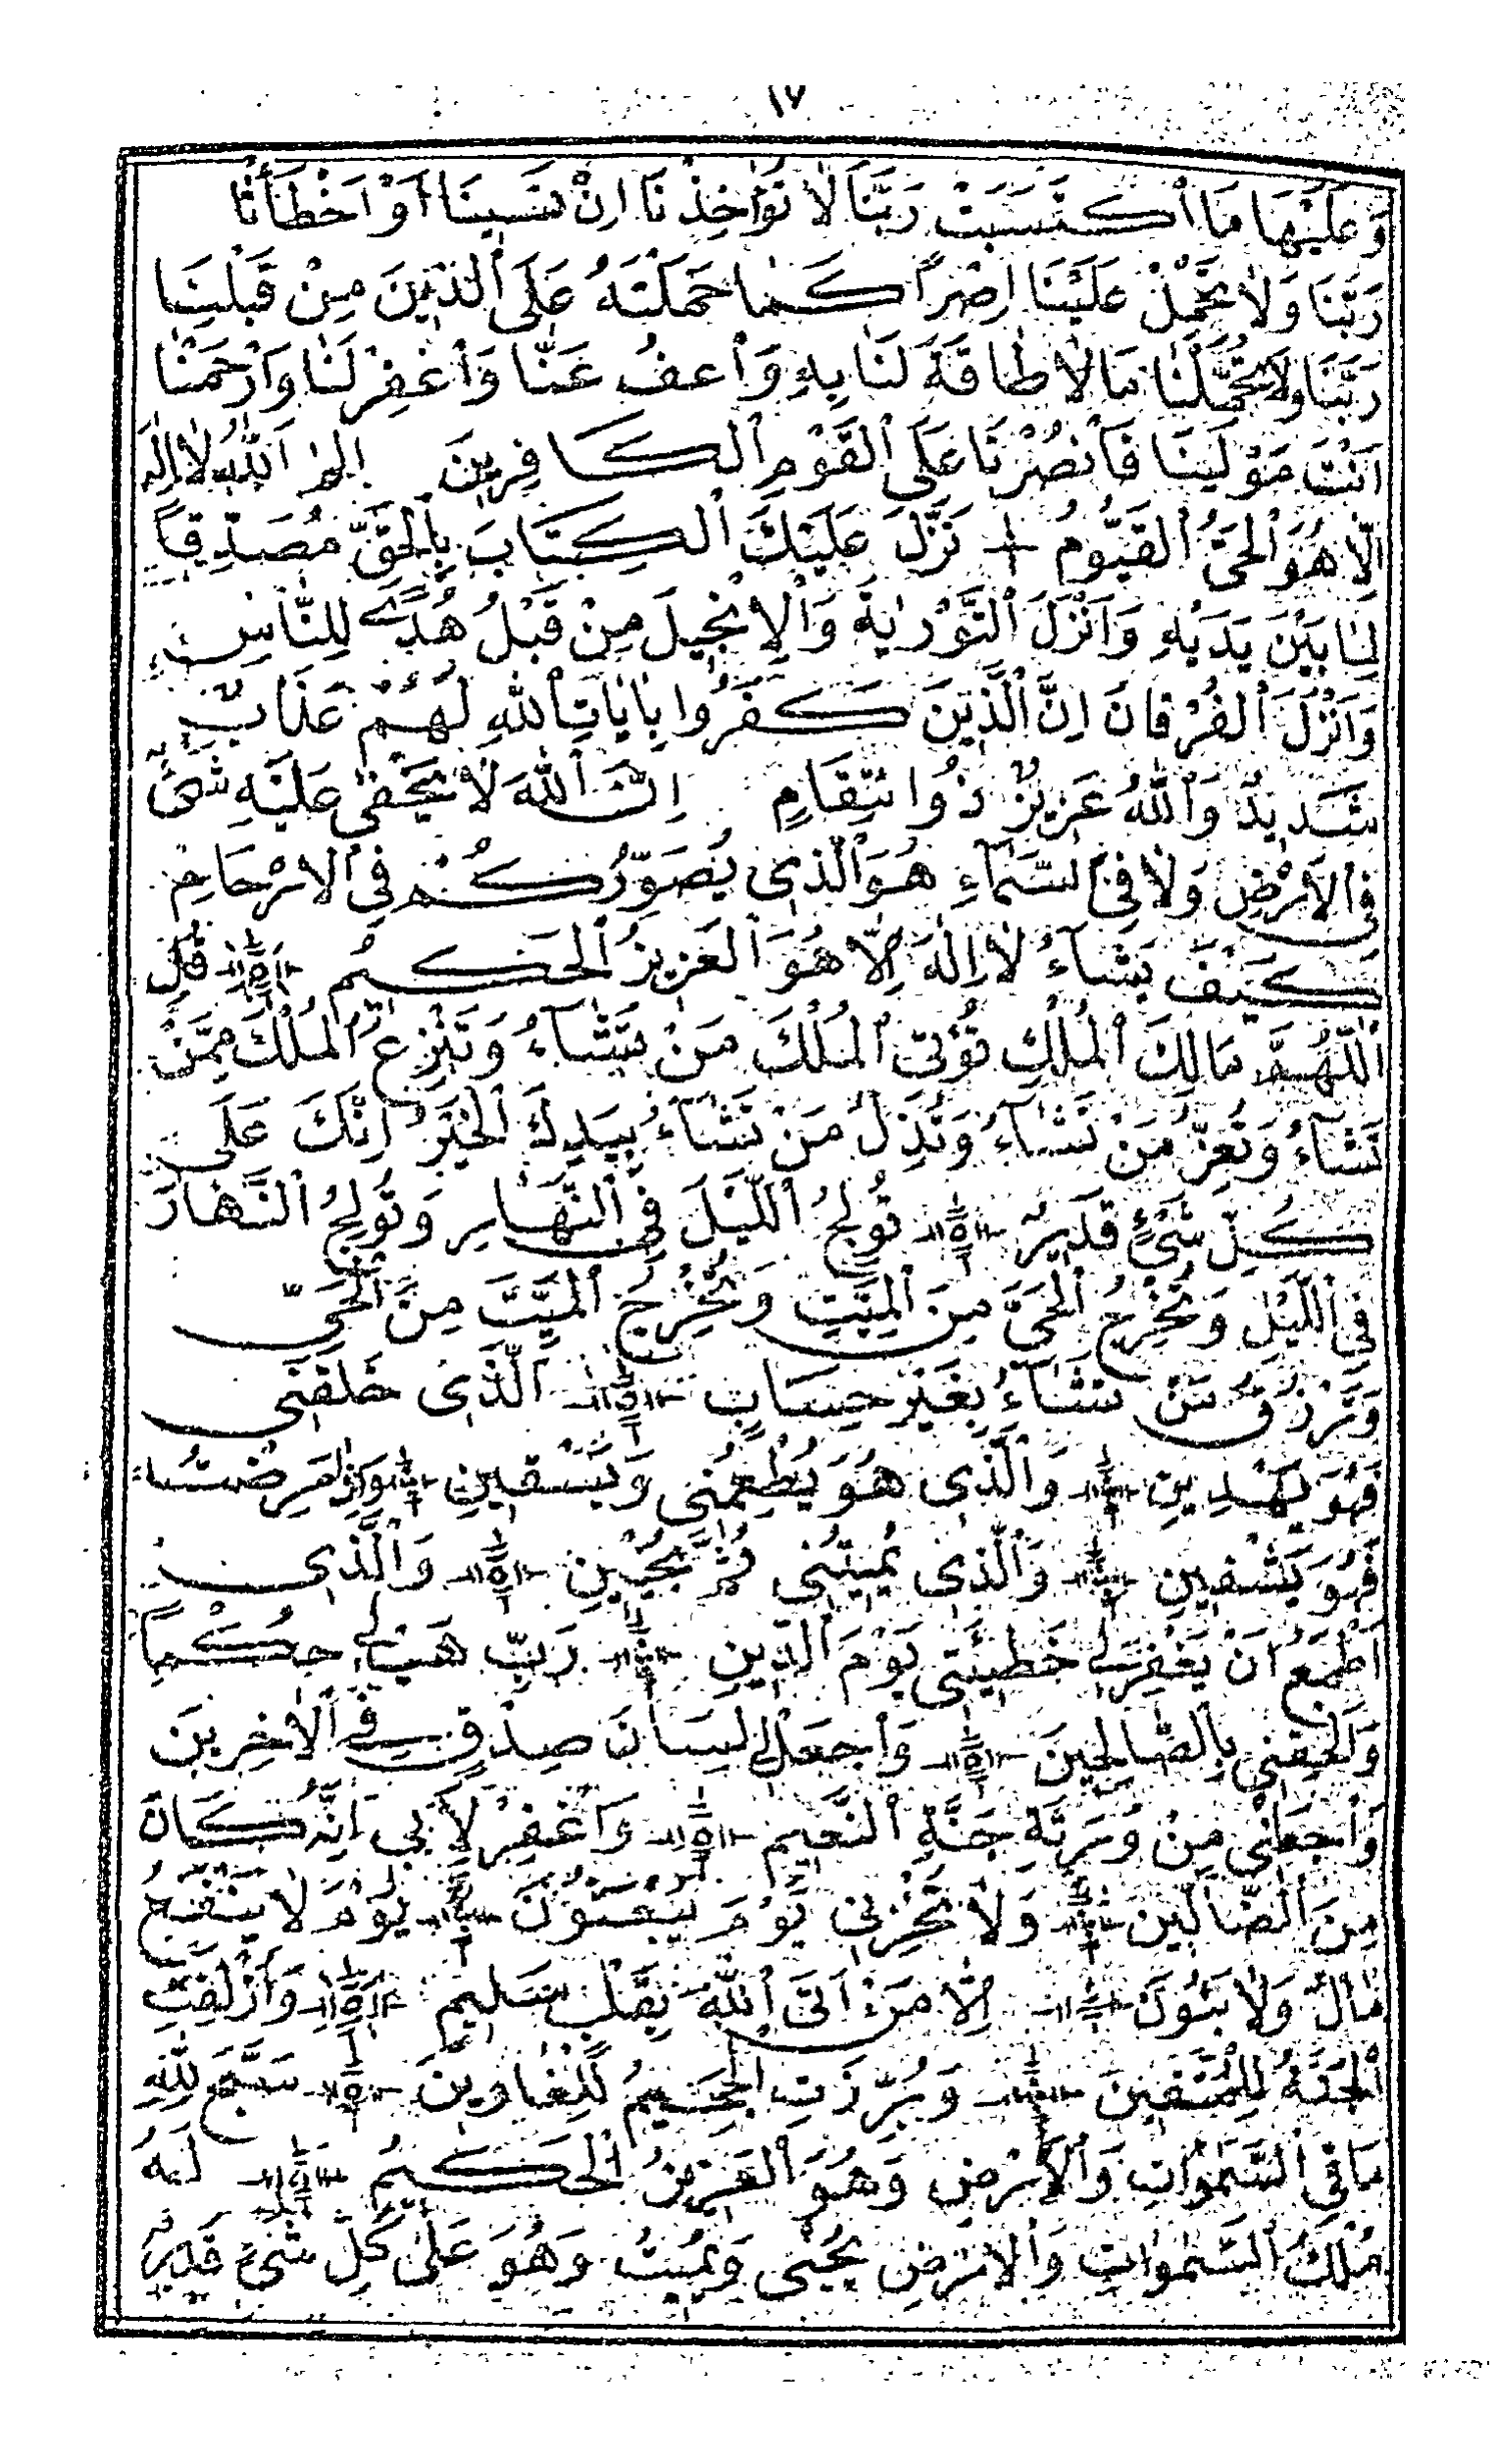 ١٧
وَعَلَيْهَا مَا ٱكْتَسَبَتْ رَبَّنَا لَا تُؤَاخِذْنَا اِنْ نَسِينَا اَوْ اَخْطَأْنَا
رَبَّنَا وَلَا تَحْمِلْ عَلَيْنَا اِصْرًا كَمَا حَمَلْتَهُ عَلَى ٱلَّذِينَ مِنْ قَبْلِنَا
رَبَّنَا وَلَا تُحَمِّلْنَا مَا لَا طَاقَةَ لَنَا بِهِ وَٱعْفُ عَنَّا وَٱغْفِرْ لَنَا وَٱرْحَمْنَا
اَنْتَ مَوْلَينَا فَٱنْصُرْنَا عَلَى ٱلْقَوْمِ ٱلْكَافِرِينَ الم اَللّٰهُ لَا اِلٰهَ
اِلَّا هُوَ ٱلْحَىُّ ٱلْقَيُّومُ نَزَّلَ عَلَيْكَ ٱلْكِتَابَ بِٱلْحَقِّ مُصَدِّقًا
لِمَا بَيْنَ يَدَيْهِ وَاَنْزَلَ ٱلتَّوْرٰيةَ وَٱلْاِنْجِيلَ مِنْ قَبْلُ هُدًى لِلنَّاسِ
وَاَنْزَلَ ٱلْفُرْقَانَ اِنَّ ٱلَّذِينَ كَفَرُوا بِاٰيَاتِ ٱللّٰهِ لَهُمْ عَذَابٌ
شَدِيدٌ وَٱللّٰهُ عَزِيزٌ ذُو ٱنْتِقَامٍ اِنَّ ٱللّٰهَ لَا يَخْفٰى عَلَيْهِ شَىْءٌ
فِى ٱلْاَرْضِ وَلَا فِى ٱلسَّمَآءِ هُوَ ٱلَّذِى يُصَوِّرُكُمْ فِى ٱلْاَرْحَامِ
كَيْفَ يَشَآءُ لَا اِلٰهَ اِلَّا هُوَ ٱلْعَزِيزُ ٱلْحَكِيمُ قُلِ
ٱللّٰهُمَّ مَالِكَ ٱلْمُلْكِ تُؤْتِى ٱلْمُلْكَ مَنْ تَشَآءُ وَتَنْزِعُ ٱلْمُلْكَ مِمَّنْ
تَشَآءُ وَتُعِزُّ مَنْ تَشَآءُ وَتُذِلُّ مَنْ تَشَآءُ بِيَدِكَ ٱلْخَيْرُ اِنَّكَ عَلَى
كُلِّ شَىْءٍ قَدِيرٌ تُولِجُ ٱللَّيْلَ فِى ٱلنَّهَارِ وَتُولِجُ ٱلنَّهَارَ
فِى ٱللَّيْلِ وَتُخْرِجُ ٱلْحَىَّ مِنَ ٱلْمَيِّتِ وَتُخْرِجُ ٱلْمَيِّتَ مِنَ ٱلْحَىِّ
وَتَرْزُقُ مَنْ تَشَآءُ بِغَيْرِ حِسَابٍ ٱلَّذِى خَلَقَنِى
فَهُوَ يَهْدِينِ وَٱلَّذِى هُوَ يُطْعِمُنِى وَيَسْقِينِ وَاِذَا مَرِضْتُ
فَهُوَ يَشْفِينِ وَٱلَّذِى يُمِيتُنِى ثُمَّ يُحْيِينِ وَٱلَّذِى
اَطْمَعُ اَنْ يَغْفِرَ لِى خَطِيئَتِى يَوْمَ ٱلدِّينِ رَبِّ هَبْ لِى حُكْمًا
وَاَلْحِقْنِى بِٱلصَّالِحِينَ وَٱجْعَلْ لِى لِسَانَ صِدْقٍ فِى ٱلْاٰخِرِينَ
وَٱجْعَلْنِى مِنْ وَرَثَةِ جَنَّةِ ٱلنَّعِيمِ وَٱغْفِرْ لِاَبِى اِنَّهُ كَانَ
مِنَ ٱلضَّالِّينَ وَلَا تُخْزِنِى يَوْمَ يُبْعَثُونَ يَوْمَ لَا يَنْفَعُ
مَالٌ وَلَا بَنُونَ اِلَّا مَنْ اَتَى ٱللّٰهَ بِقَلْبٍ سَلِيمٍ وَاُزْلِفَتِ
ٱلْجَنَّةُ لِلْمُتَّقِينَ وَبُرِّزَتِ ٱلْجَحِيمُ لِلْغَاوِينَ سَبَّحَ لِلّٰهِ
مَا فِى ٱلسَّمٰوَاتِ وَٱلْاَرْضِ وَهُوَ ٱلْعَزِيزُ ٱلْحَكِيمُ لَهُ
مُلْكُ ٱلسَّمٰوَاتِ وَٱلْاَرْضِ يُحْيِى وَيُمِيتُ وَهُوَ عَلٰى كُلِّ شَىْءٍ قَدِيرٌ